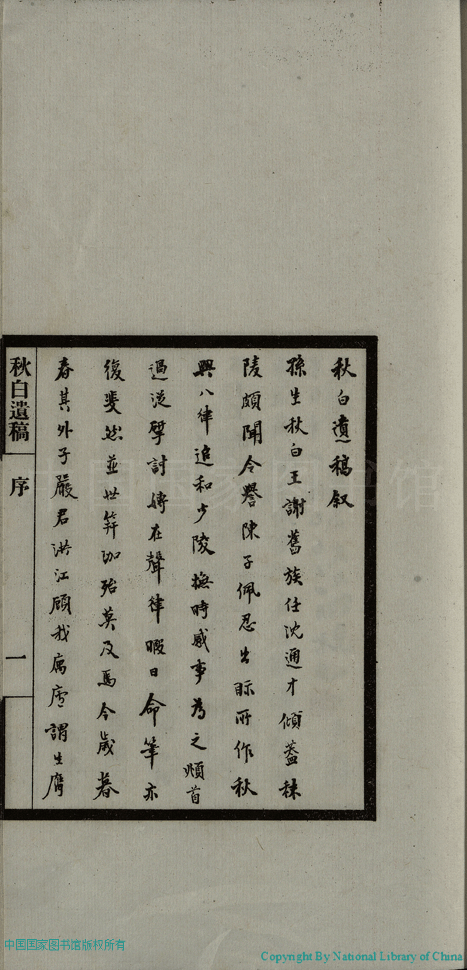 秋白遺稿叙
孫生秋白王謝舊族任沈通才傾蓋秣
陵頗聞令譽陳子佩忍出眎所作秋
興八律追和少陵撫時感事為之頫首
過從擘討嫥在聲律暇日命筆亦
復斐然並世笄珈殆莫及焉今歲暮
春其外子嚴君洪江顧我謂生膺
秋白遺稿
序
一
中国国家图书馆
中国国家图书馆版权所有
Copyright By National Library of China